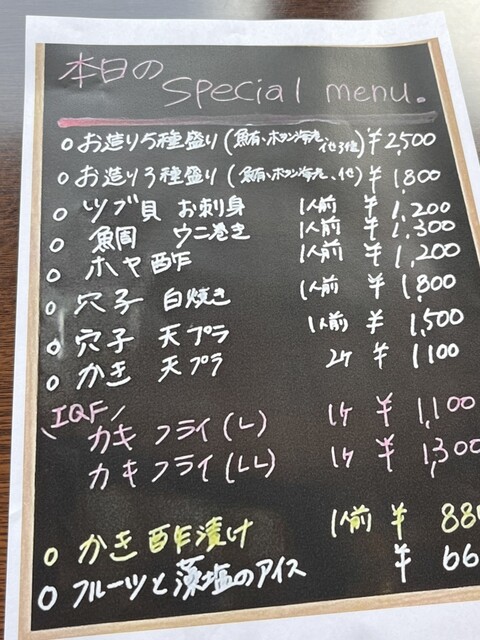 本日の Special menu.
○ お造り5種盛り(鮪、ボタン海老、他3種) ¥2,500
○ お造り3種盛り(鮪、ボタン海老、他) ¥1,800
○ ツブ貝 お刺身 1人前 ¥1,200
○ 鯛 ウニ巻き 1人前 ¥1,300
○ ホヤ酢 1人前 ¥1,200
○ 穴子 白焼き 1人前 ¥1,800
○ 穴子 天プラ 1人前 ¥1,500
○ かき 天プラ 2ケ ¥1100
IQF
カキ フライ(L) 1ケ ¥1,100
カキ フライ(LL) 1ケ ¥1,300
○ かき 酢漬け 1人前 ¥88
○ フルーツと藻塩のアイス ¥66